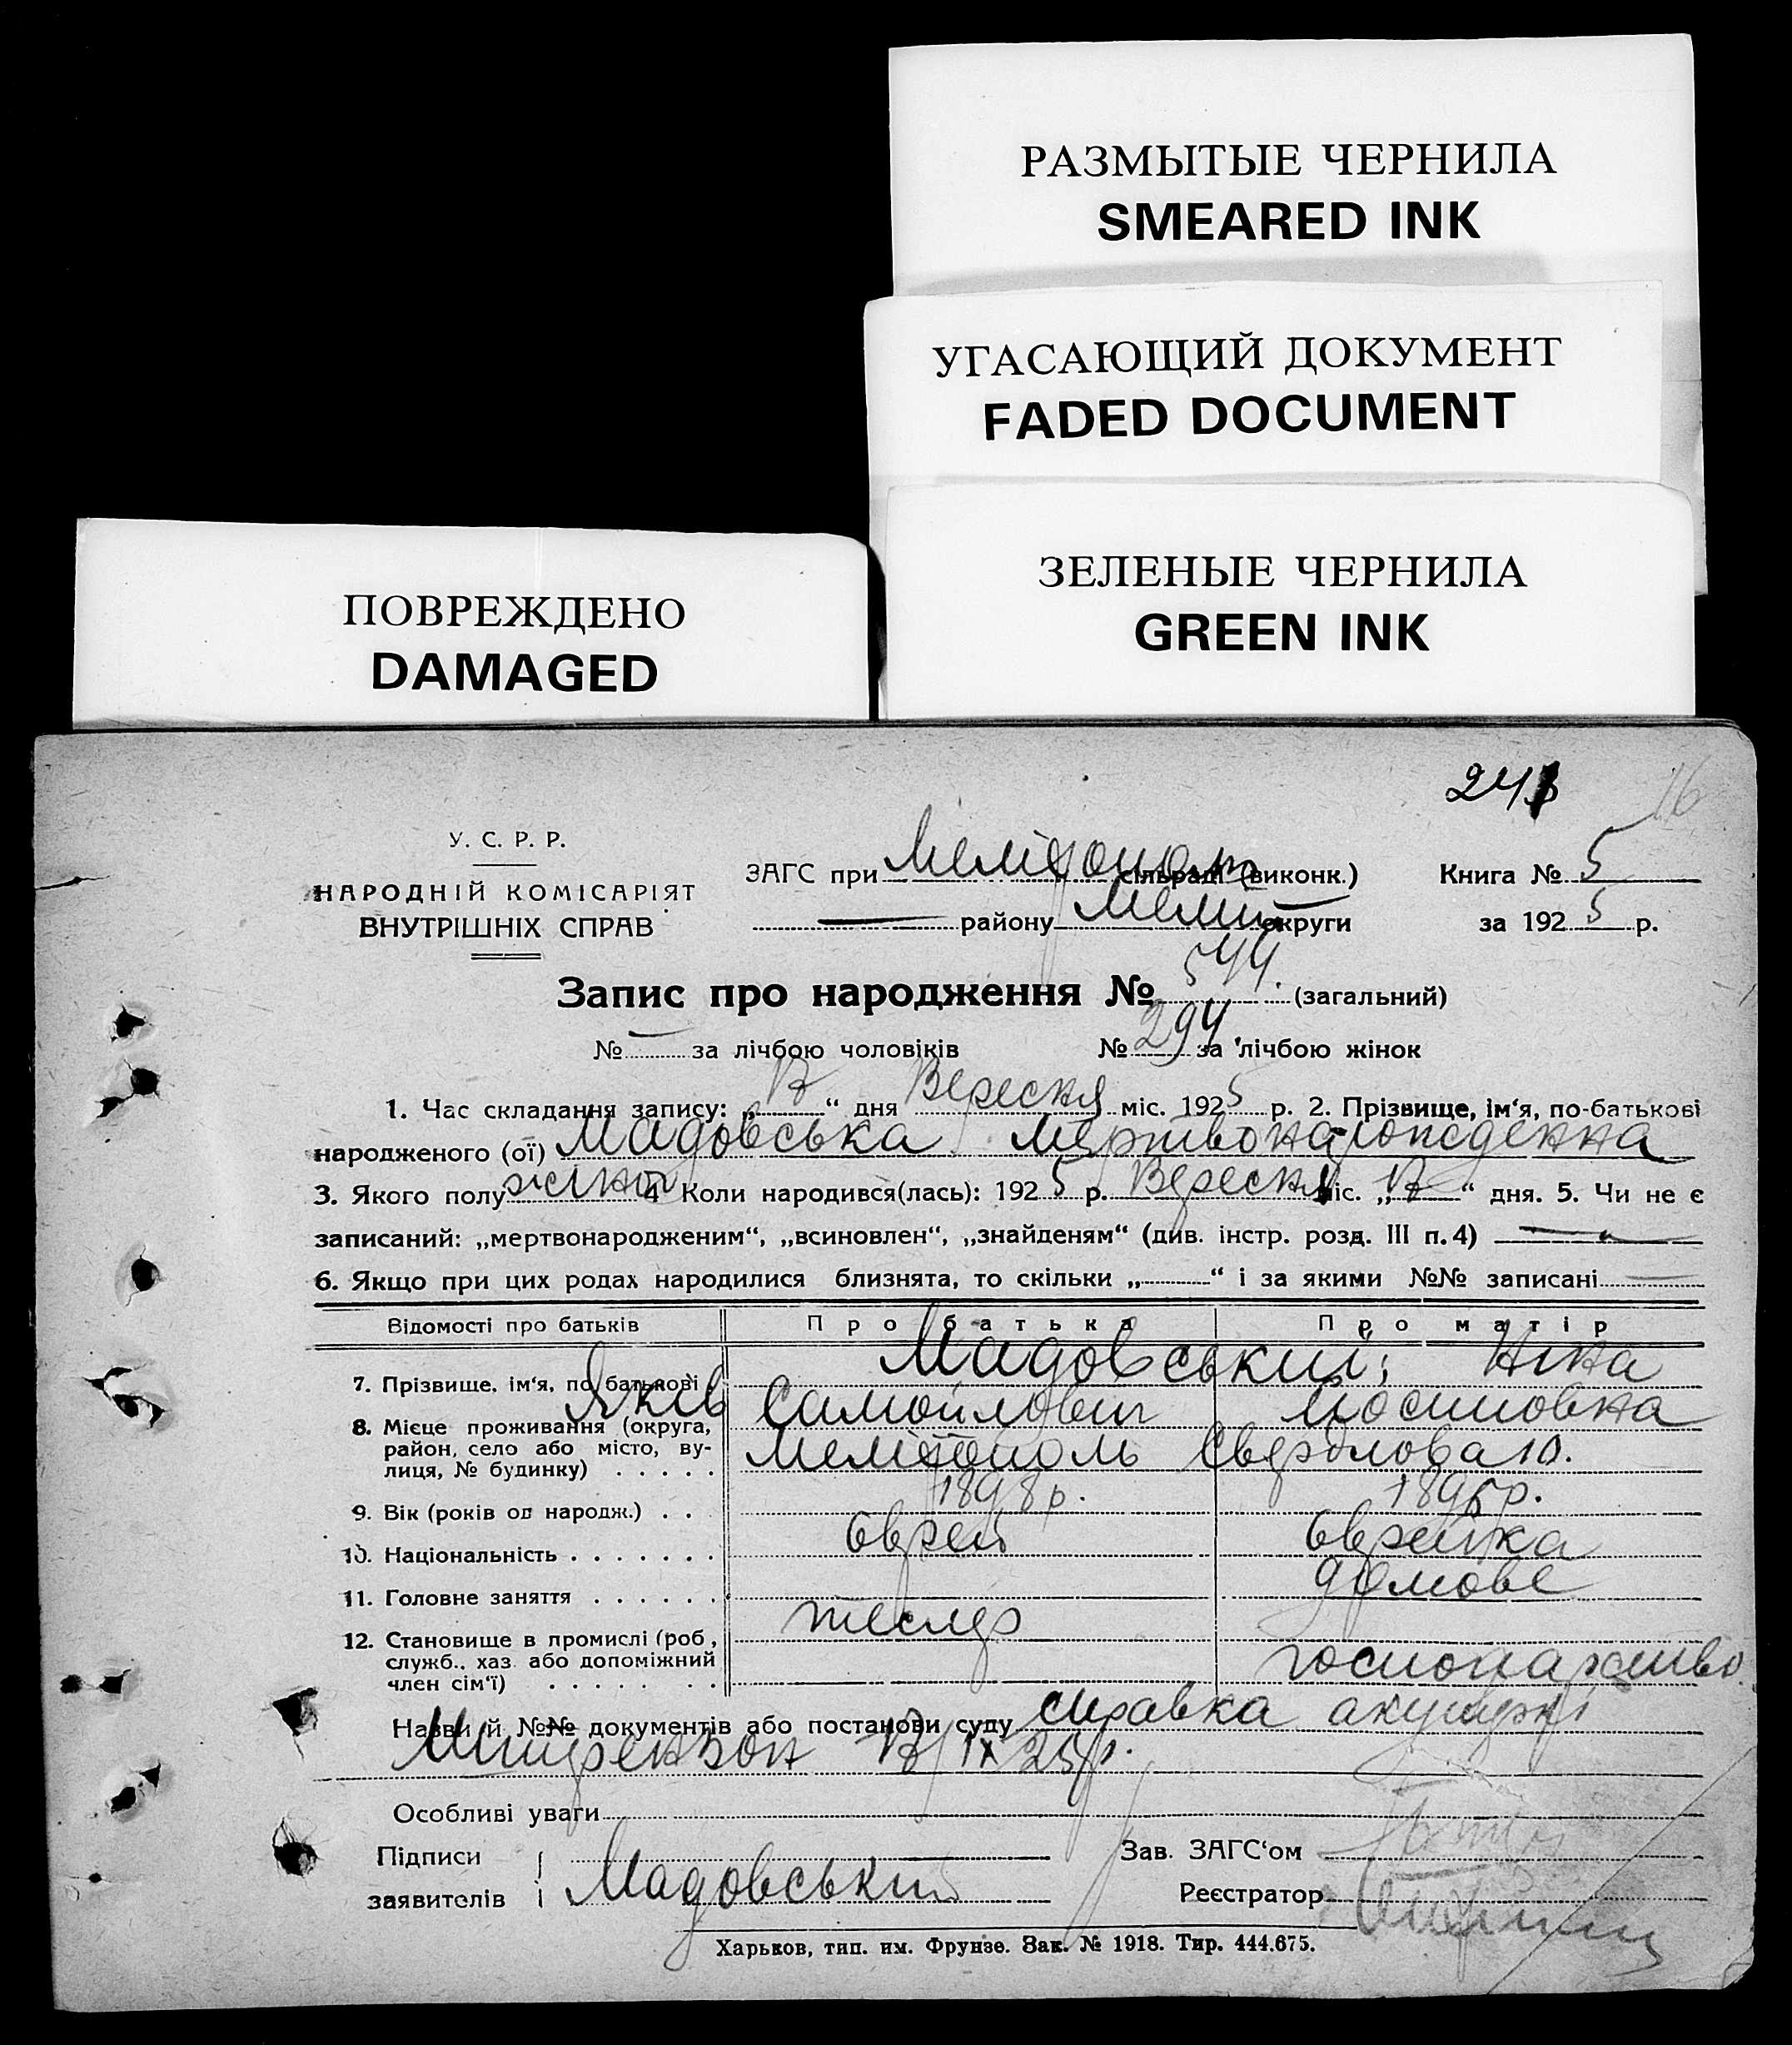 РАЗМЫТЫЕ ЧЕРНИЛА
SMEARED INK
УГАСАЮЩИЙ ДОКУМЕНТ
FADED DOCUMENT
ЗЕЛЕНЫЕ ЧЕРНИЛА
GREEN INK
ПОВРЕЖДЕНО
DAMAGED
16
У. С. Р. Р.
НАРОДНІЙ КОМІСАРІЯТ
ВНУТРІШНІХ СПРАВ
ЗАГС при Мелітополь сільраді (виконк.)
Книга № 5
району Меліт округи
за 1925 р.
Запис про народження № 544. (загальний)
№ — за лічбою чоловіків № 294 за лічбою жінок
1. Час складання запису: „ “ дня Вересня міс. 1925 р. 2. Прізвище, ім‘я, по-батькові
народженого (ої) Мадовська мертвонародженна
3. Якого полу жіноч 4 Коли народився(лась): 1925 р. Вересня міс. „ “ дня. 5. Чи не є
записаний: „мертвонародженим“, „всиновлен“, „знайденям“ (див. інстр. розд. III п. 4) —
6. Якщо при цих родах народилися близнята, то скільки „ “ і за якими №№ записані —
Відомості про батьків
Про батька
Про матір
7. Прізвище, ім‘я, по батькові
Мадовський;
Яків Самойлович
Ніна
Йосиповна
8. Місце проживання (округа, район, село або місто, вулиця, № будинку) . . . . .
Мелітополь Свердлова 10.
9. Вік (років од народж.) . . .
1898 р.
1895 р.
10. Національність . . . . . . .
Єврей
Єврейка
11. Головне заняття . . . . . .
тесляр
домове
12. Становище в промислі (роб, служб., хаз. або допоміжний член сім‘ї) . . . . . . .
господарство.
Назви й №№ документів або постанови суду справка акушерки
IX 25 р.
Особливі уваги
Підписи
заявителів
Мадовський
Зав. ЗАГС‘ом
Реєстратор
Харьков, тип. им. Фрунзе. Зак. № 1918. Тир. 444.675.